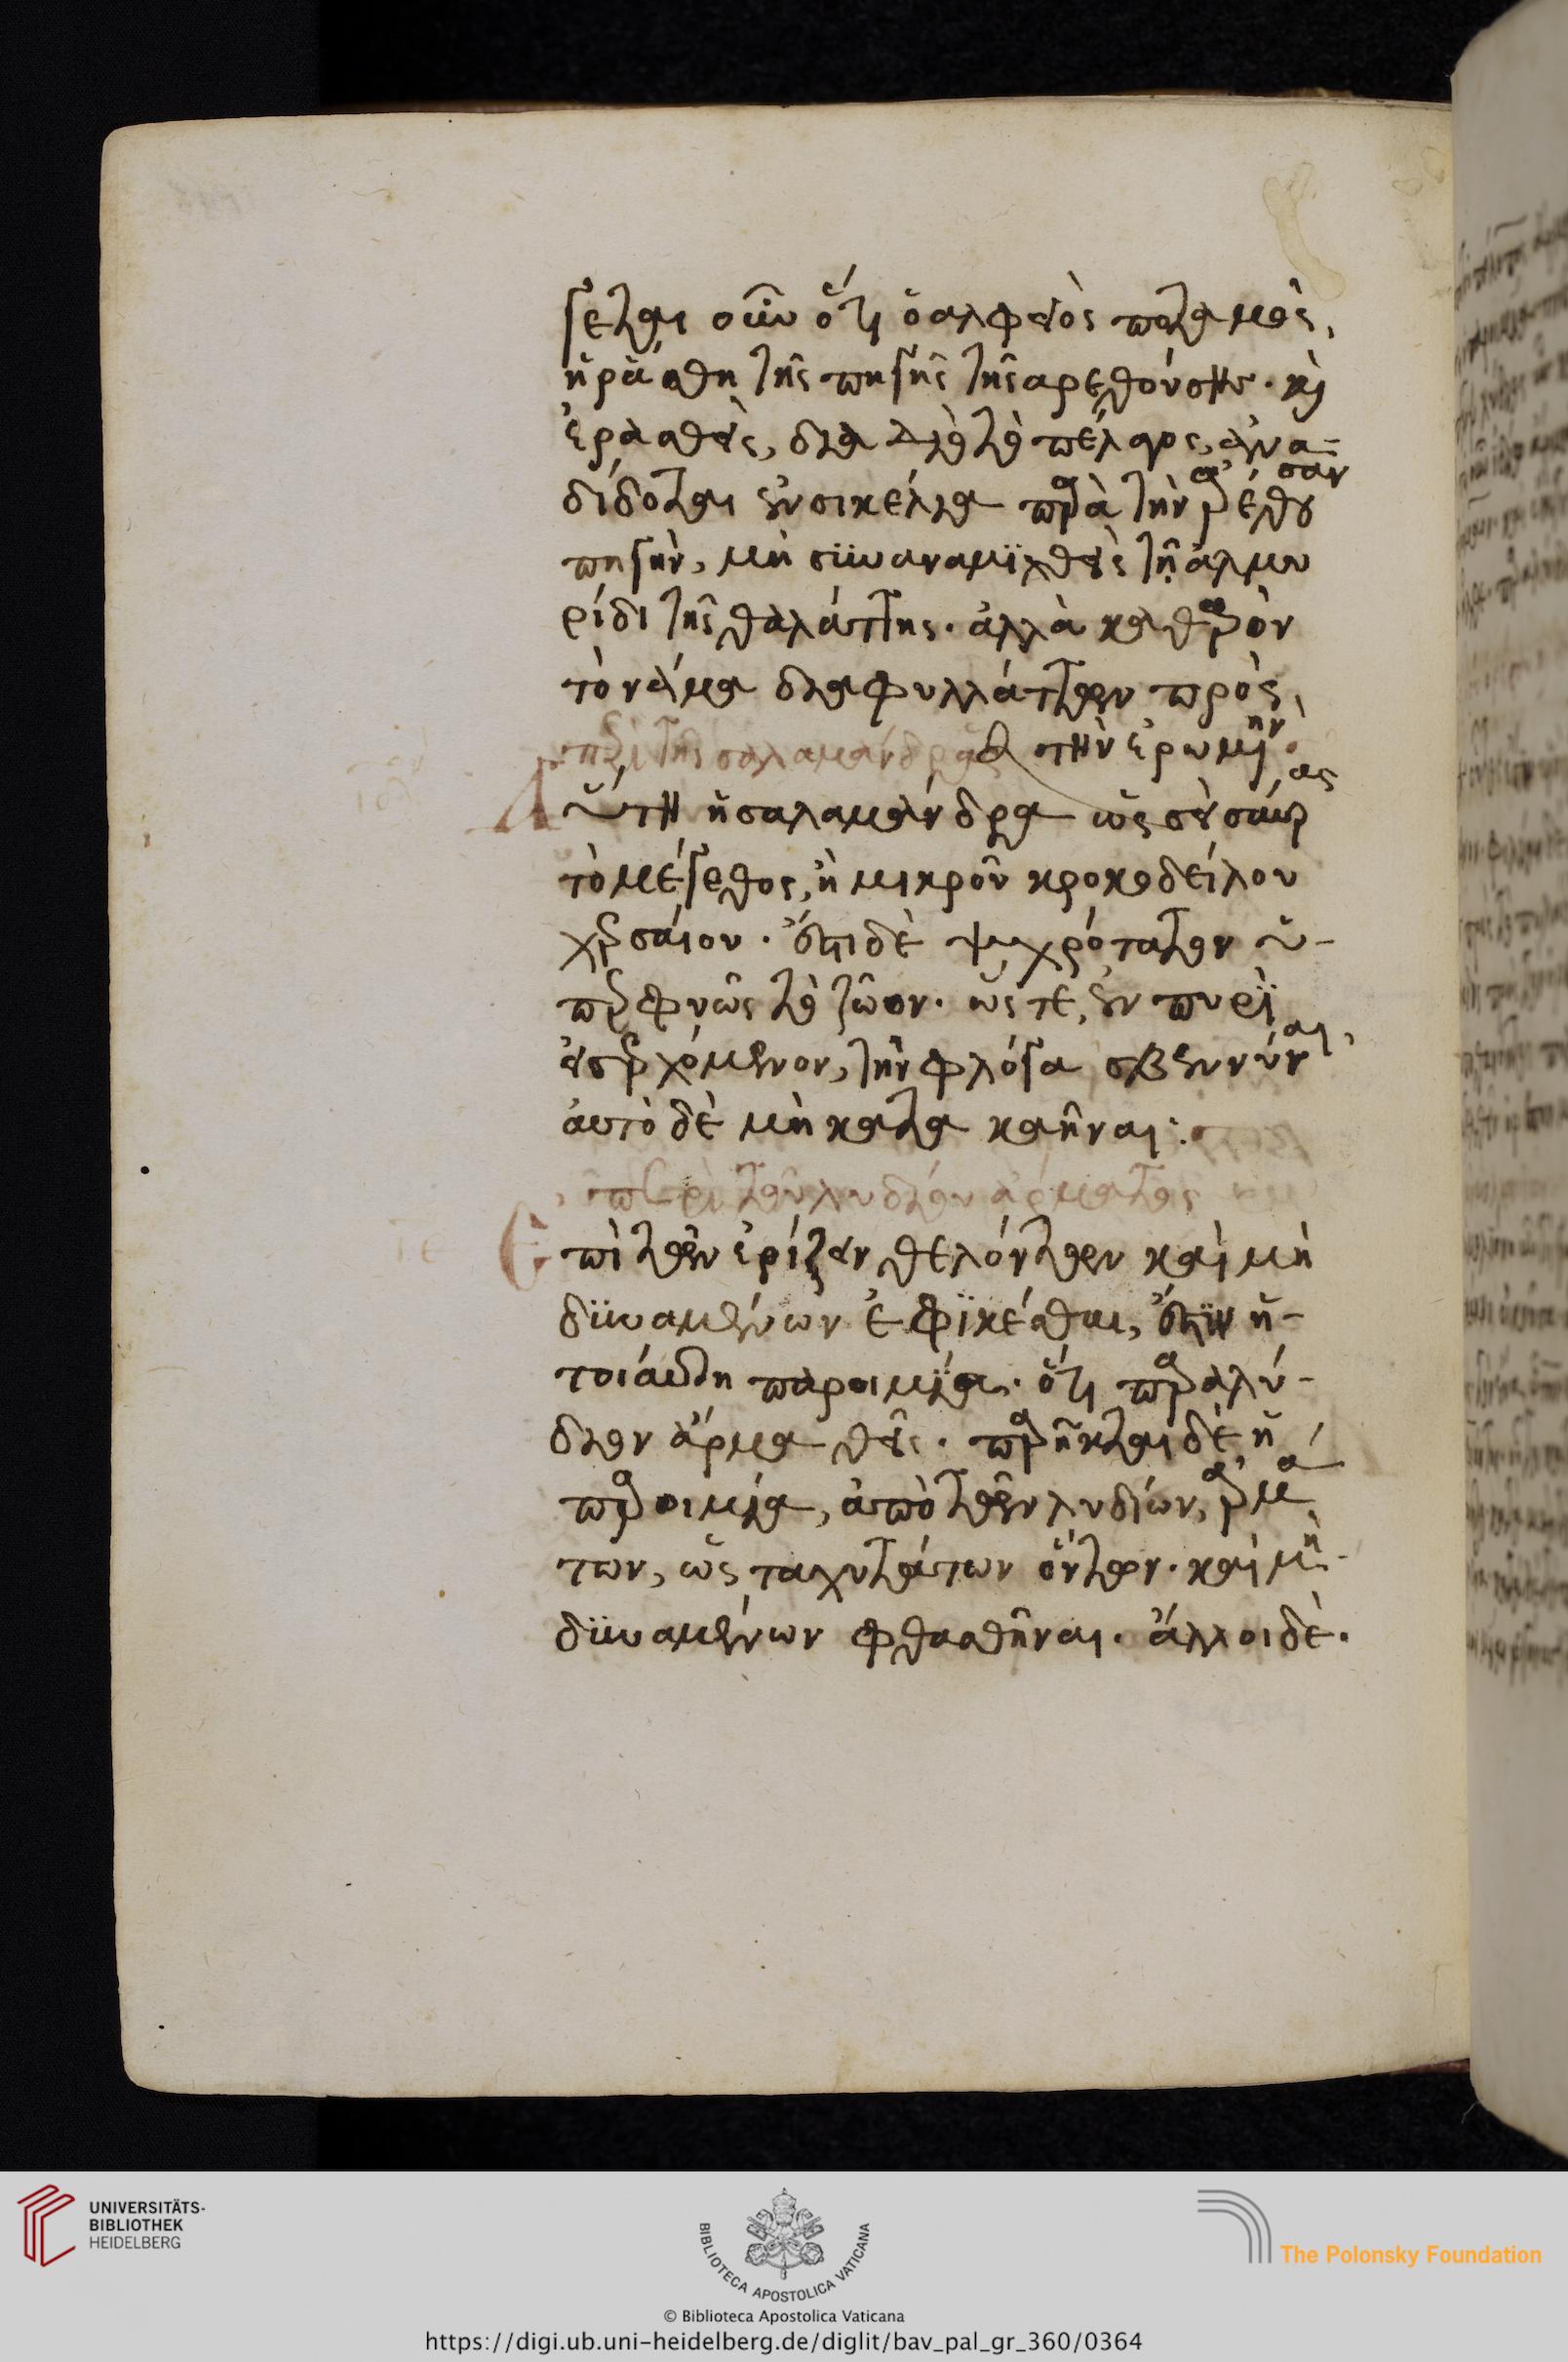 γεται οὖν ὅτι ὁ ἀλφειὸς ποταμὸς,
ἠράσθη τῆς πηγῆς τῆς ἀρεθούσης· κὶ
ἐρασθεὶς, δια τὸ πέλαγος, ἀνα-
δίδοται ἐν σικελια παρὰ τὴν ἀρέθουσαν
πηγὴν, μὴ συναναμιχθεὶς τῇ ἁλμυ
ρίδι τῆς θαλάττης· ἀλλὰ καθαρὸν
τὸ νάμα διαφυλλάττων πρὸς
τὴν ἐρωμένην·
περὶ τῆς σαλαμάνδρας
Αὕτη ἡ σαλαμάνδρα ὡς εἰς σαύρας
τὸ μέγεθος, ἢ μικροῦ κροκοδείλου
χερσαίου· ἔστι δὲ ψυχρότατον ὑ-
περφυῶς τὸ ζῶον· ὥς τε, ἐν πυρὶ
εἰσερχόμενον, τὴν φλόγα σβεννύναι,
αὐτὸ δὲ μὴ κατα καῆναι:
περὶ τοῦ λυδίου ἅρματος
Ἐπὶ τῶν ἐρίζειν θελόντων καὶ μὴ
δυναμένων ἐφικέσθαι, ἔστιν ἡ-
τοιαύτη παροιμία· ὅτι παρὰ λύ-
διον ἅρμα θεῖς· παρῆκται δὲ ἡ
παροιμία, ἀπὸ τῶν λυδίων, ἁρμά
των, ὡς ταχυτάτων ὄντων· καὶ μὴ-
δυναμένων φθασθῆναι· ἄλλοι δὲ·
ΙΕ
UNIVERSITÄTS-
BIBLIOTHEK
HEIDELBERG
BIBLIOTECA APOSTOLICA VATICANA
The Polonsky Foundation
© Biblioteca Apostolica Vaticana
https://digi.ub.uni-heidelberg.de/diglit/bav_pal_gr_360/0364